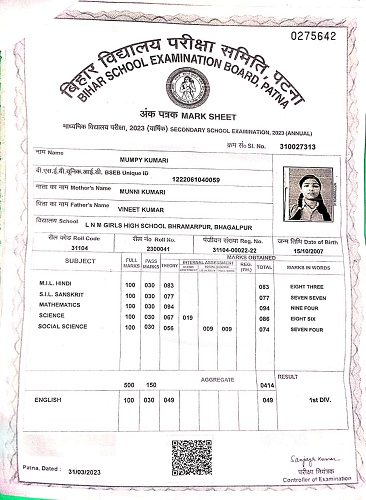 0275642
बिहार विद्यालय परीक्षा समिति, पटना
BIHAR SCHOOL EXAMINATION BOARD, PATNA
अंक पत्रक MARK SHEET
माध्यमिक विद्यालय परीक्षा, 2023 (वार्षिक) SECONDARY SCHOOL EXAMINATION, 2023 (ANNUAL)
क्रम सं० Sl. No. 310027313
नाम Name
MUMPY KUMARI
बी.एस.ई.बी.यूनिक.आई.डी. BSEB Unique ID
1222061040059
माता का नाम Mother's Name
MUNNI KUMARI
पिता का नाम Father's Name
VINEET KUMAR
विद्यालय School
L N M GIRLS HIGH SCHOOL BHRAMARPUR, BHAGALPUR
रौल कोड Roll Code रौल नं० Roll No. पंजीयन संख्या Reg. No. जन्म तिथि Date of Birth
31104 2300041 31104-00022-22 15/10/2007
MARKS OBTAINED
SUBJECT FULL MARKS PASS MARKS THEORY INTERNAL ASSESSMENT REG. (TH.) TOTAL MARKS IN WORDS
M.I.L. HINDI 100 030 083 083 EIGHT THREE
S.I.L. SANSKRIT 100 030 077 077 SEVEN SEVEN
MATHEMATICS 100 030 094 094 NINE FOUR
SCIENCE 100 030 067 019 086 EIGHT SIX
SOCIAL SCIENCE 100 030 056 009 009 074 SEVEN FOUR
500 150 AGGREGATE 0414 RESULT
ENGLISH 100 030 049 049 1st DIV.
Patna, Dated : 31/03/2023
Sanjay Kumar
परीक्षा नियंत्रक
Controller of Examination